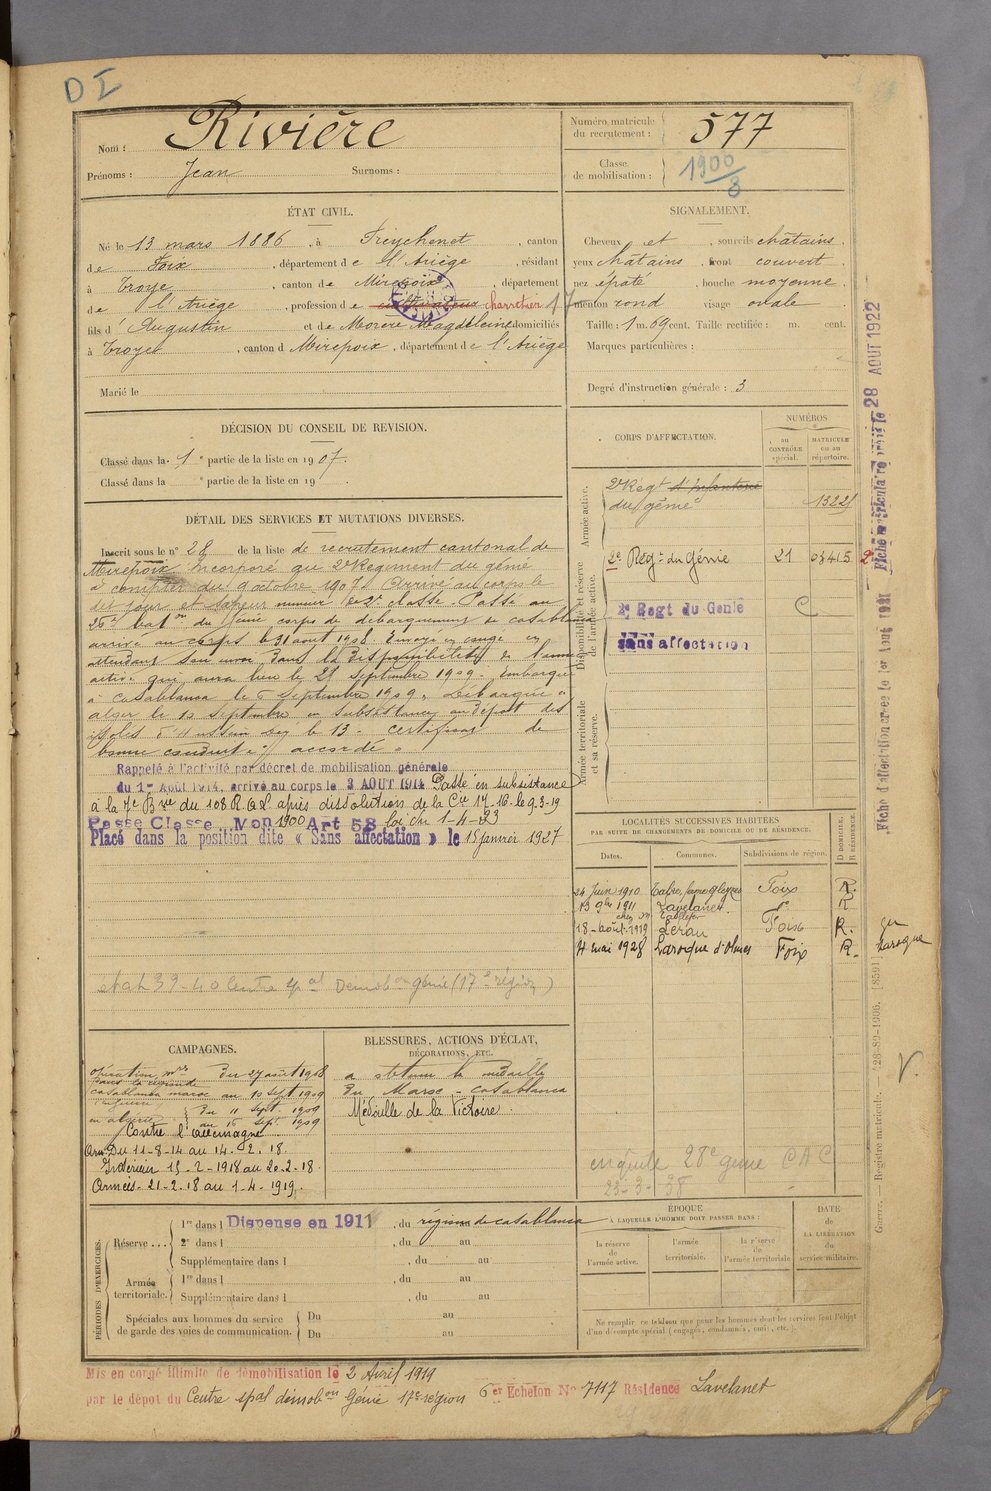 D I
Nom : Rivière
Prénoms : Jean Surnoms :
Numéro matricule du recrutement : 577
Classe de mobilisation : 1900/8
ÉTAT CIVIL.
Né le 13 mars 1886, à Freychenet, canton
de Foix, département de l'Ariège, résidant
à Troye, canton de Mirepoix, département
de l'Ariège, profession de cultivateur charretier 17
fils d'Augustin et de Morere Magdeleine domiciliés
à Troyes, canton d Mirepoix, département de l'Ariège
Marié le
SIGNALEMENT.
Cheveux et, sourcils châtains,
yeux châtains, front couvert,
nez épaté, bouche moyenne,
menton rond visage ovale
Taille : 1 m. 69 cent. Taille rectifiée : m. cent.
Marques particulières :
Degré d'instruction générale : 3
DÉCISION DU CONSEIL DE REVISION.
Classé dans la 1e partie de la liste en 1907.
Classé dans la e partie de la liste en 19 .
DÉTAIL DES SERVICES ET MUTATIONS DIVERSES.
Inscrit sous le n° 28 de la liste de recrutement cantonal de
Mirepoix. Incorporé au 2e Régiment du génie
à compter du 9 octobre 1907. Arrivé au corps le
dit jour et sapeur mineur de 2e classe. Passé au
26e bat.on du génie corps de débarquement de Casablanca
arrivé au corps le 31 août 1908. Envoyé en congé en
attendant son envoi dans la disponibilité de l'armée
active qui aura lieu le 25 septembre 1909. Embarqué
à Casablanca le 6 Septembre 1909. Débarqué à
Alger le 10 Septembre en subsistance au dépôt des
isolés d'Hussein dey le 13. Certificat de
bonne conduite : accordé.
Rappelé à l'activité par décret de mobilisation générale
du 1er Août 1914, arrivé au corps le 3 AOUT 1914 Passé en subsistance
à la 7e Bie du 108 R.A.L. après dissolution de la Cie 17-16 le 9-3-19
Passé Classe Mon 1900 Art 58 loi du 1-4-23
Placé dans la position dite « Sans affectation » le 15 janvier 1927
CORPS D'AFFECTATION.
NUMÉROS
au CONTRÔLE spécial.
MATRICULE ou au répertoire.
Armée active.
2e Régt d'infanterie
du génie 1322
Disponibilité et réserve de l'armée active.
2e Régt du Génie 21 03415
2e Regt du Génie C
sans affectation
Armée territoriale et sa réserve.
LOCALITÉS SUCCESSIVES HABITÉES
PAR SUITE DE CHANGEMENTS DE DOMICILE OU DE RÉSIDENCE.
D DOMICILE. R RÉSIDENCE.
Dates. Communes. Subdivisions de région.
24 Juin 1910 Foix R.
13 9bre 1911 Lavelanet do R
18-août-1919 Léran Foix R.
4 mai 1928 Laroque d'Olmes Foix R.
Laroque
28 AOUT 1922
Fiche d'affectation créée le 1er Août 1921
CAMPAGNES.
Opérations
Casablanca Maroc
du 27 août 1908
au 10 sept 1909
en Algérie du 11 sept. 1909
au 16 sept. 1909
Contre l'Allemagne
Arm. Du 11-8-14 au 14-2-18.
Intérieur 15-2-1918 au 20-2-18.
Armées 21-2-18 au 1-4-1919.
BLESSURES, ACTIONS D'ÉCLAT, DÉCORATIONS, ETC.
a obtenu la médaille
du Maroc - Casablanca
Médaille de la Victoire.
enquête 28e génie CAC
23-3-38
PÉRIODES D'EXERCICES.
Réserve... 1re dans l Dispense en 1911, du région de Casablanca
2e dans l , du au
Supplémentaire dans l , du au
Armée territoriale. 1re dans l , du au
Supplémentaire dans l , du au
Spéciales aux hommes du service de garde des voies de communication. Du au
Du au
ÉPOQUE
À LAQUELLE L'HOMME DOIT PASSER DANS :
la réserve de l'armée active.
l'armée territoriale.
la réserve de l'armée territoriale
DATE de LA LIBÉRATION du service militaire.
Ne remplir ce tableau que pour les hommes dont les services font l'objet
d'un décompte spécial (engagés, condamnés, omis, etc.).
Guerre. — Registre matricule. — 428-89-1906. [8591]
V.
Mis en congé illimité de démobilisation le 2 Avril 1919
par le dépôt du Centre spal démobon Génie 17e région 6er Echelon No 7117 Résidence Lavelanet